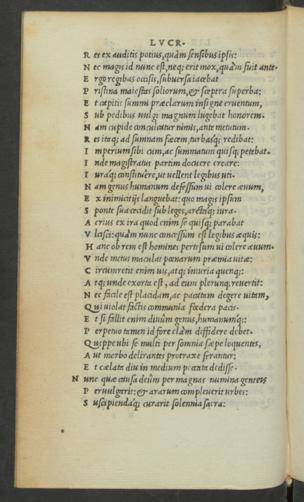 LVCR.
R es ex auditis potius, quàm sensibus ipsis:
N ec magis id nunc est, neq; erit mox, quàm fuit ante.
E rgo regibus occisis, subuersa iacebat
P ristina maiestas soliorum, & sceptra superba:
E t capitis summi præclarum insigne cruentum,
S ub pedibus uulgi magnum lugebat honorem.
N am cupide conculcatur nimis, ante metutum.
R es itaq; ad summam fæcem, turbasq; redibat:
I mperium sibi cum, ac summatum quisq; petebat.
I nde magistratus partim docuere creare:
I uraq; constituêre, ut uellent legibus uti.
N am genus humanum defessum ui colere æuum,
E x inimicitijs languebat: quo magis ipsum
S ponte sua cecidit sub leges, arctaq; iura.
A crius ex ira quod enim se quisq; parabat
V lcisci: quàm nunc concessum est legibus æquis:
H anc ob rem est homines pertesum ui colere æuum.
V nde metus maculat pœnarum præmia uitæ:
C ircumretit enim uis, atq; iniuria quenq;:
A tq; unde exorta est, ad eum plerunq; reuertit:
N ec facile est placidam, ac pacatam degere uitam,
Q ui uiolat factis communia fœdera pacis.
E t si fallit enim diuûm genus, humanumq;:
P erpetuo tamen id fore clàm diffidere debet.
Q uippe ubi se multi per somnia sæpe loquentes,
A ut morbo delirantes protraxe ferantur:
E t cælata diu in medium peccata dedisse.
N unc quæ causa deûm per magnas numina genteis
P eruulgerit: & ararum compleuerit urbes:
S uscipiendaq; curarit solennia sacra: